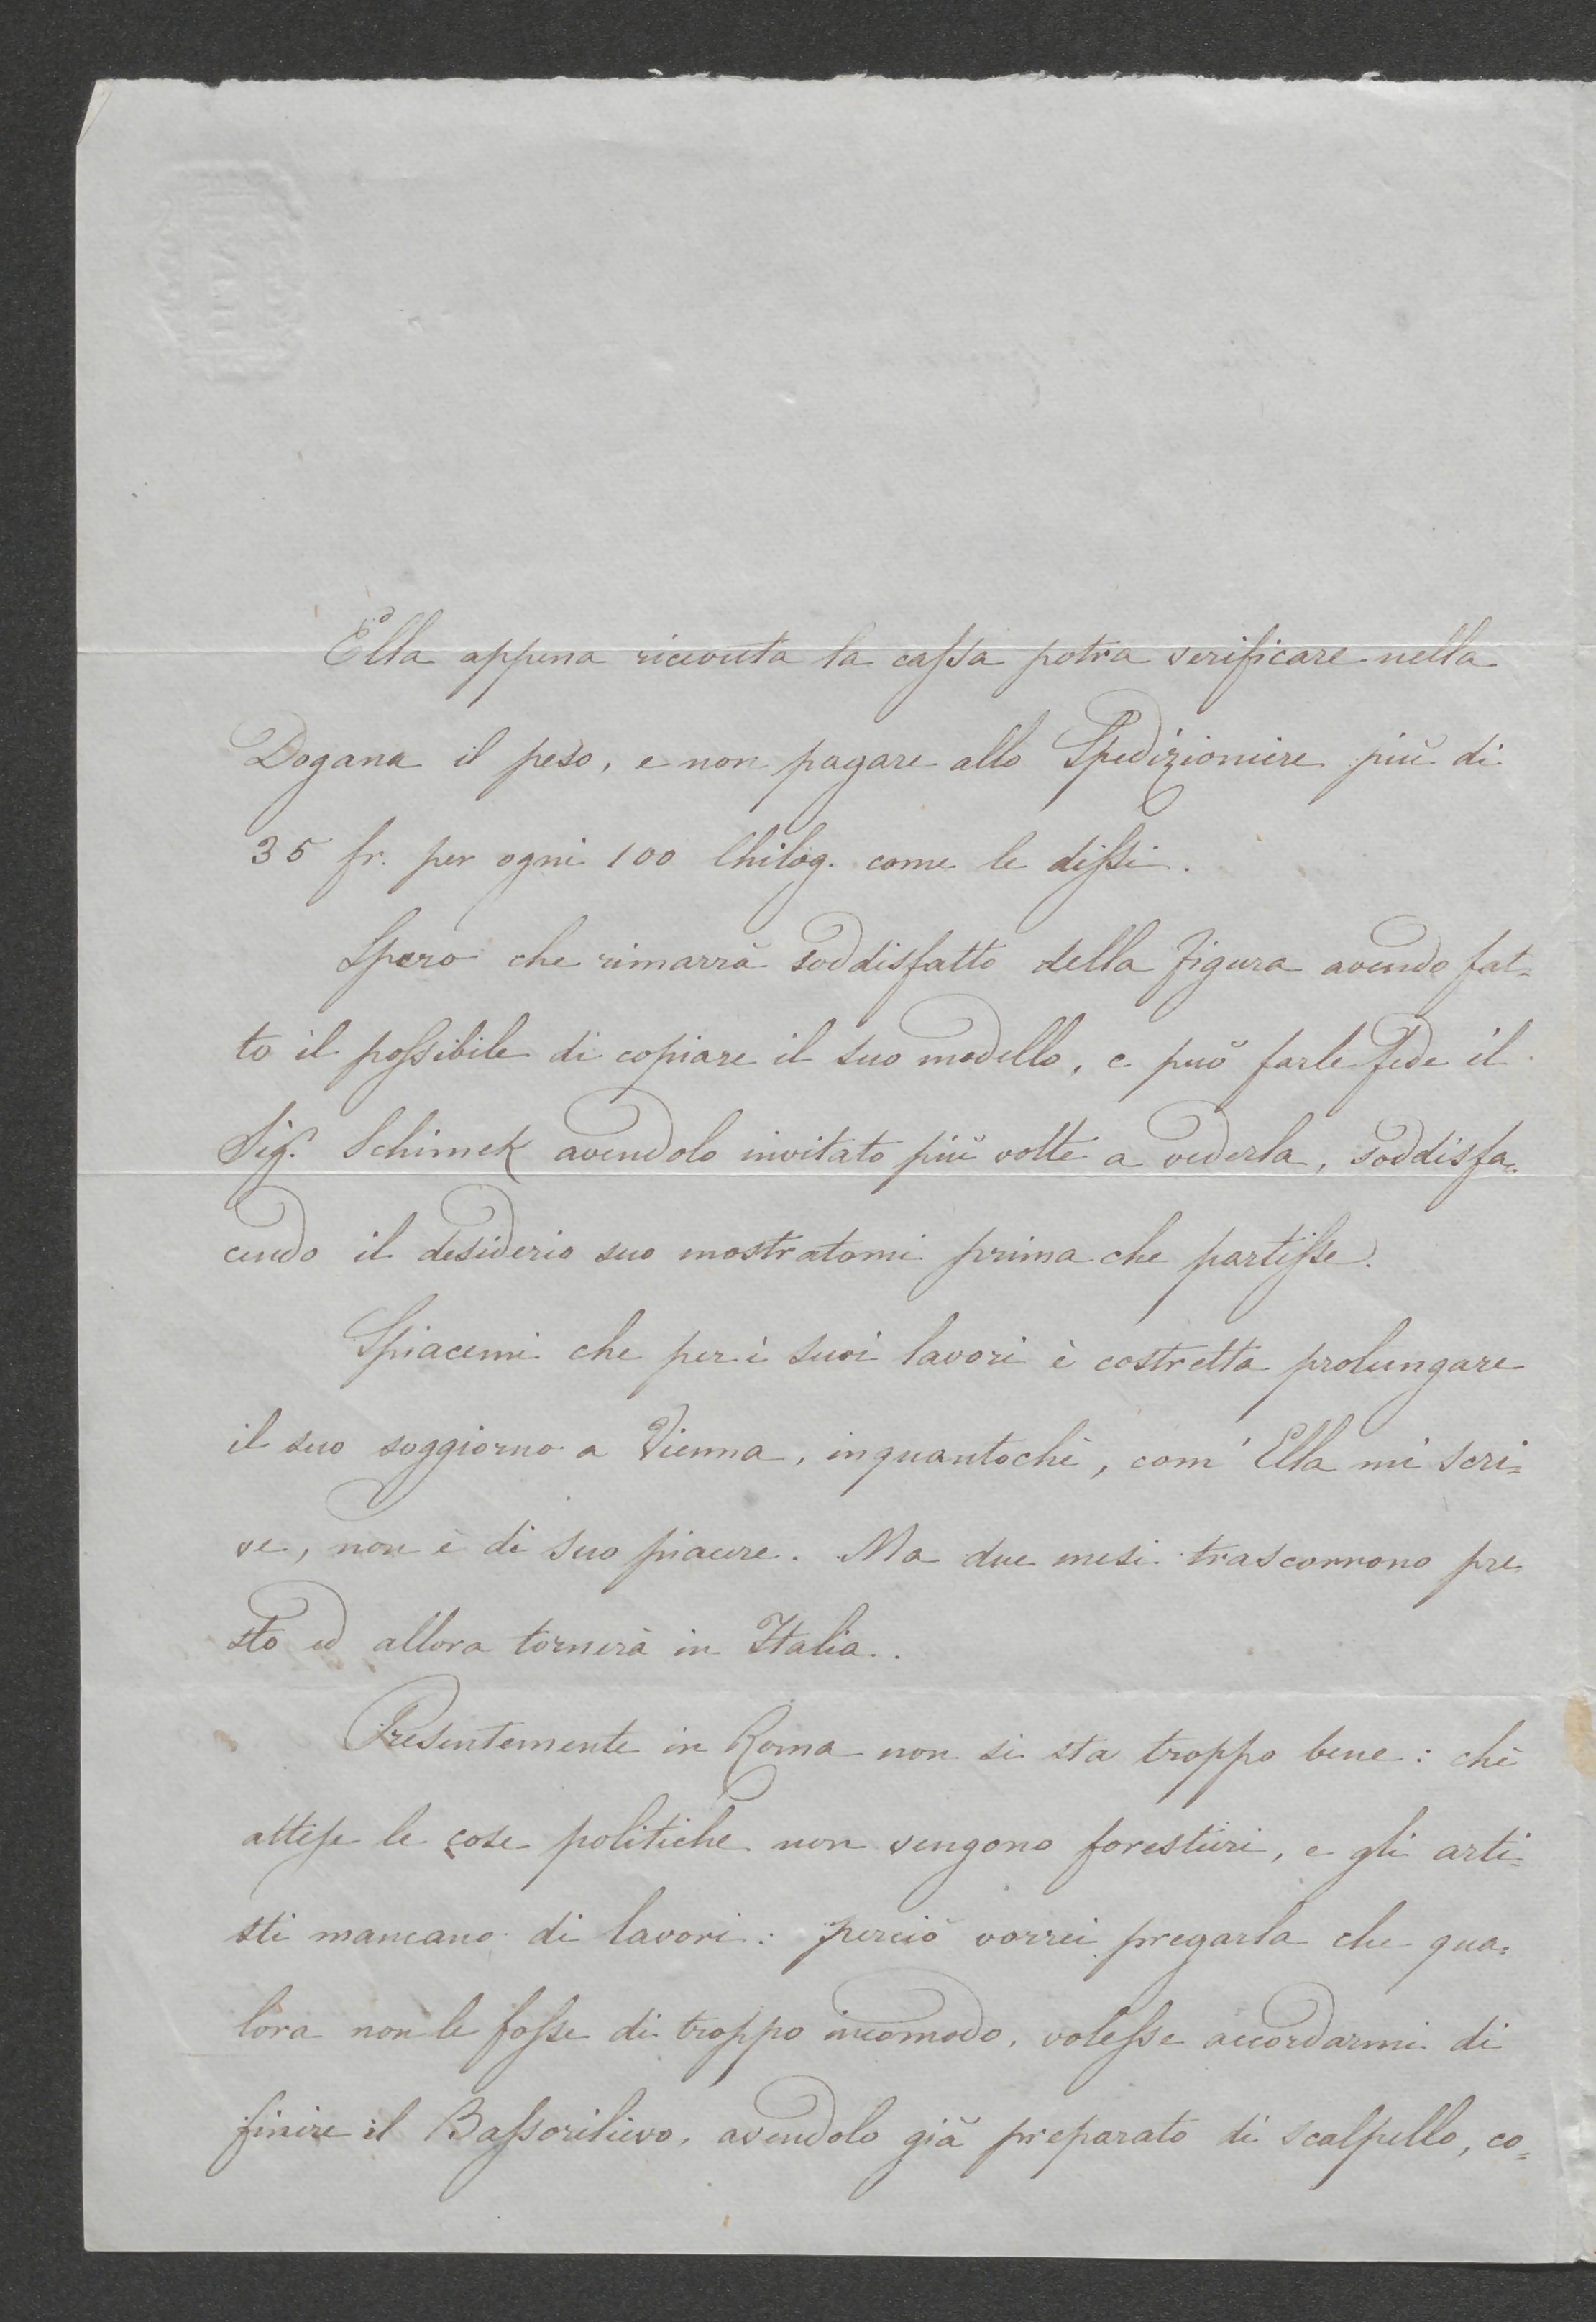 Ella appena ricevuta la cassa potra verificare nella
Dogana il peso, e non pagare allo Spedizioniere più di
35 fr. per ogni 100 Chilog. come le dissi.
Spero che rimarrà soddisfatto della figura avendo fat=
to il possibile di copiare il suo modello, e può farle fede il
Sigr. Schimek avendolo invitato più volte a vederla, soddisfa=
cendo il desiderio suo mostratomi prima che partisse.
Spiacemi che per i suoi lavori è costretta prolungare
il suo soggiorno a Vienna, inquantochè, com' Ella mi scri=
ve, non è di suo piacere. Ma due mesi trascorrono pre
sto ed allora tornerà in Italia.
Presentemente in Roma non si sta troppo bene: chè
attese le cose politiche non vengono forestieri, e gli arti=
sti mancano di lavori: perciò vorrei pregarla che qua=
lora non le fosse di troppo incomodo, volesse accordarmi di
finire il Bassorilievo, avendolo già preparato di scalpello, co=